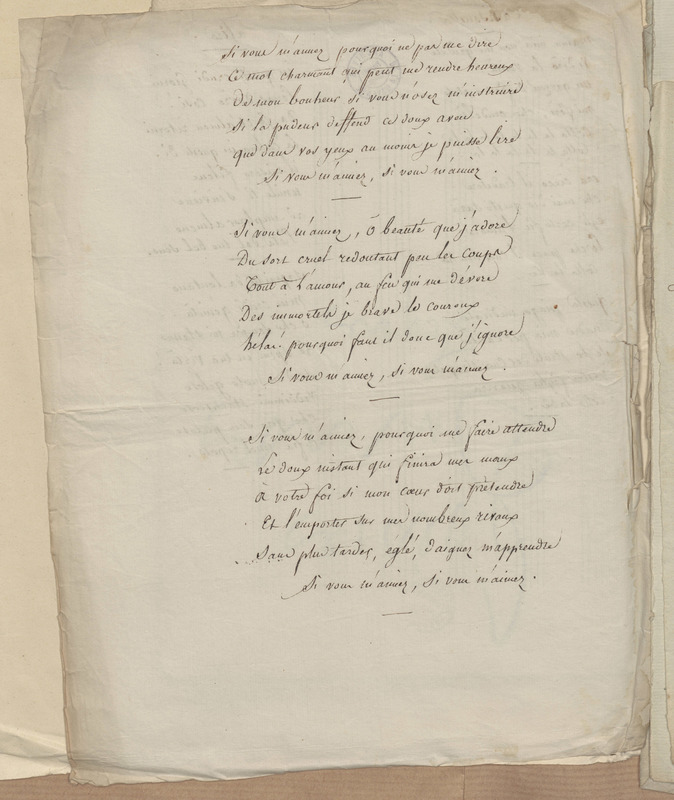 Si vous m'aimez pourquoi ne pas me dire
Ce mot charmant qui peut me rendre heureux
De mon bonheur si vous n'osez m'instruire
Si la pudeur deffend ce doux aveu
que dans vos yeux au moins je puisse lire
Si vous m'aimez, si vous m'aimez.
Si vous m'aimez, ô beauté que j'adore
Du sort cruel redoutant peu les coups
Tout à l'amour, au feu qui me dévore
Des immortels je brave le couroux
hélas! pourquoi faut il donc que j'ignore
Si vous m'aimez, si vous m'aimez.
Si vous m'aimez, pourquoi me faire attendre
Le doux instant qui finira mes maux
à votre foi si mon cœur doit prétendre
Et l'emporter sur mes nombreux rivaux
Sans plus tarder, églé, daignez m'apprendre
Si vous m'aimez, si vous m'aimez.